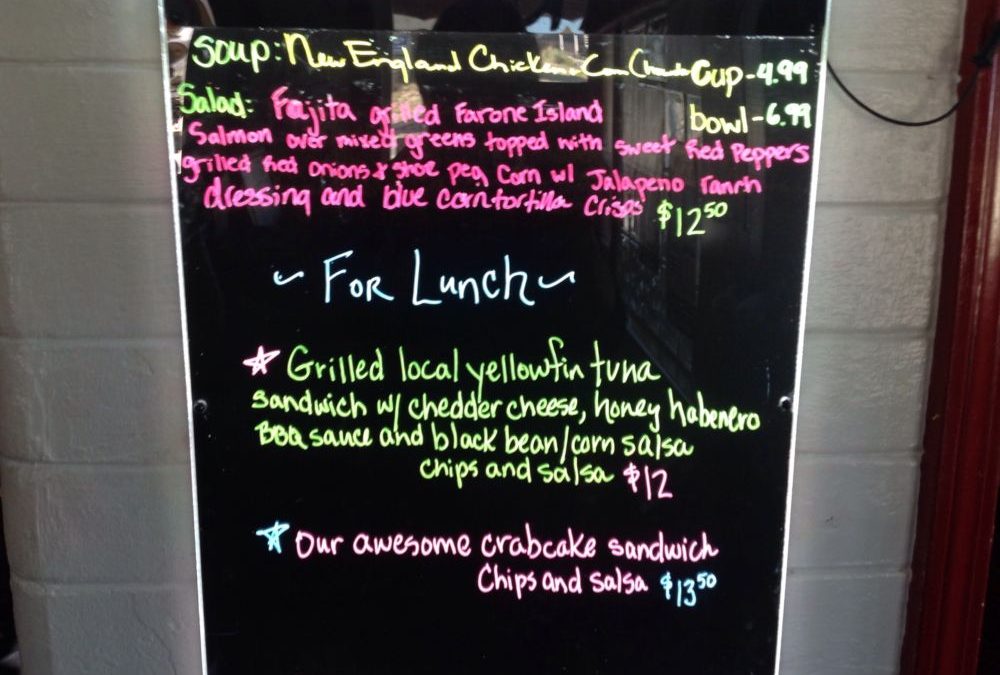 Soup: New England Chicken & Corn Chowder Cup - 4.99
bowl - 6.99
Salad: Fajita grilled Farone Island
Salmon over mixed greens topped with sweet Red Peppers
grilled Red onions & shoe peg Corn w/ Jalapeno ranch
dressing and blue corn tortilla Crisps $12.50
~ For Lunch ~
Grilled local yellowfin tuna
sandwich w/ chedder cheese, honey habenero
BBQ sauce and black bean/corn salsa
chips and salsa $12
Our awesome crabcake sandwich
Chips and salsa $13.50